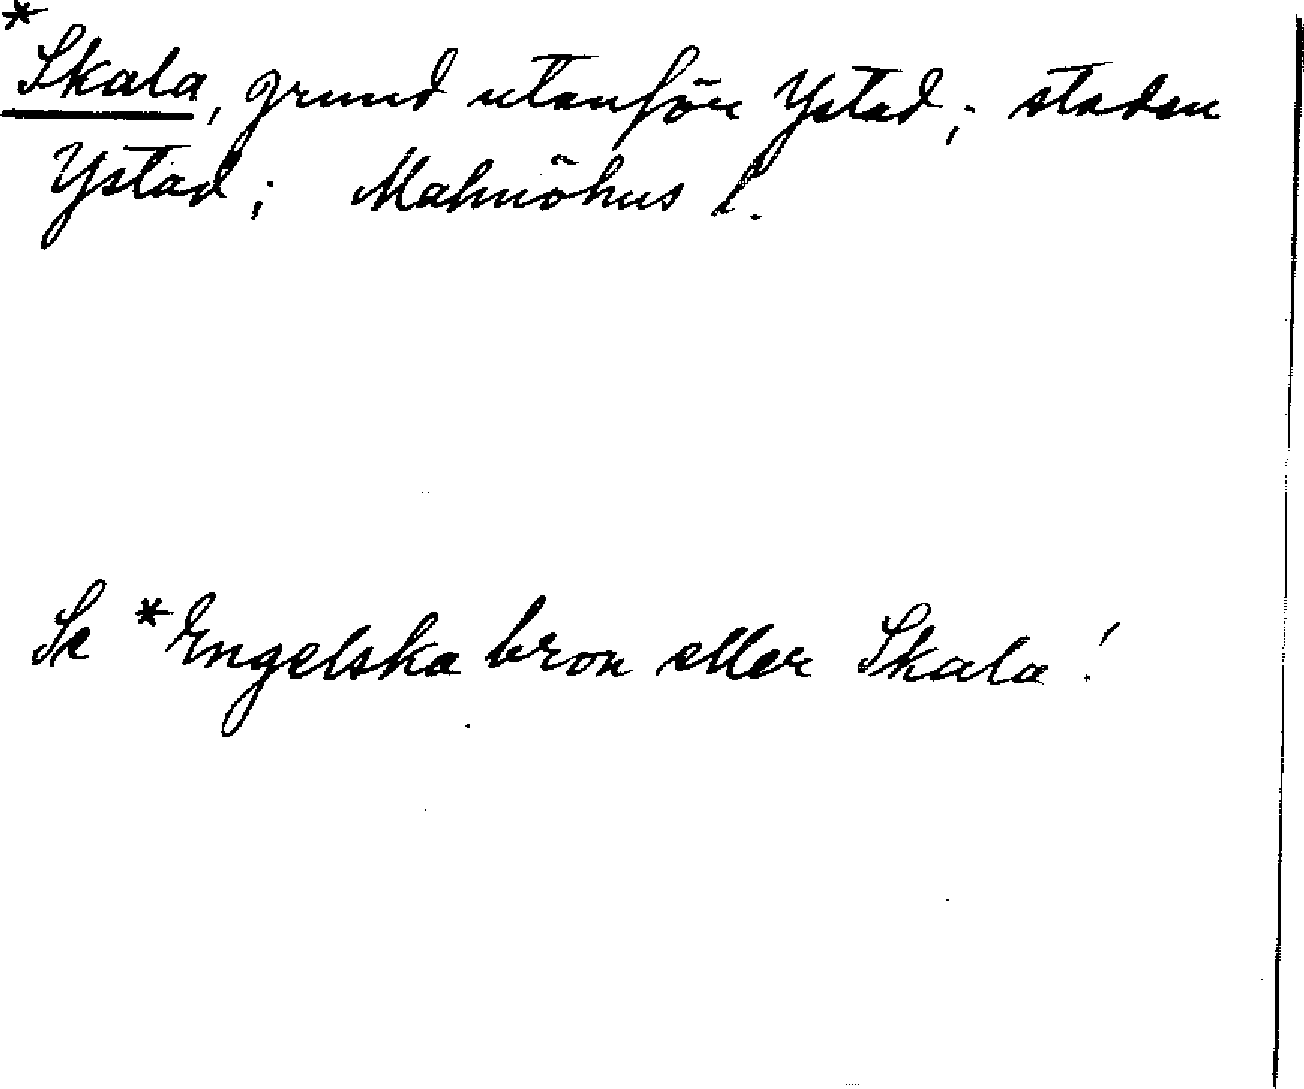 *Skala, grund utanför Ystad; staden
Ystad; Malmöhus l.
Se *Engelska bron eller Skala!